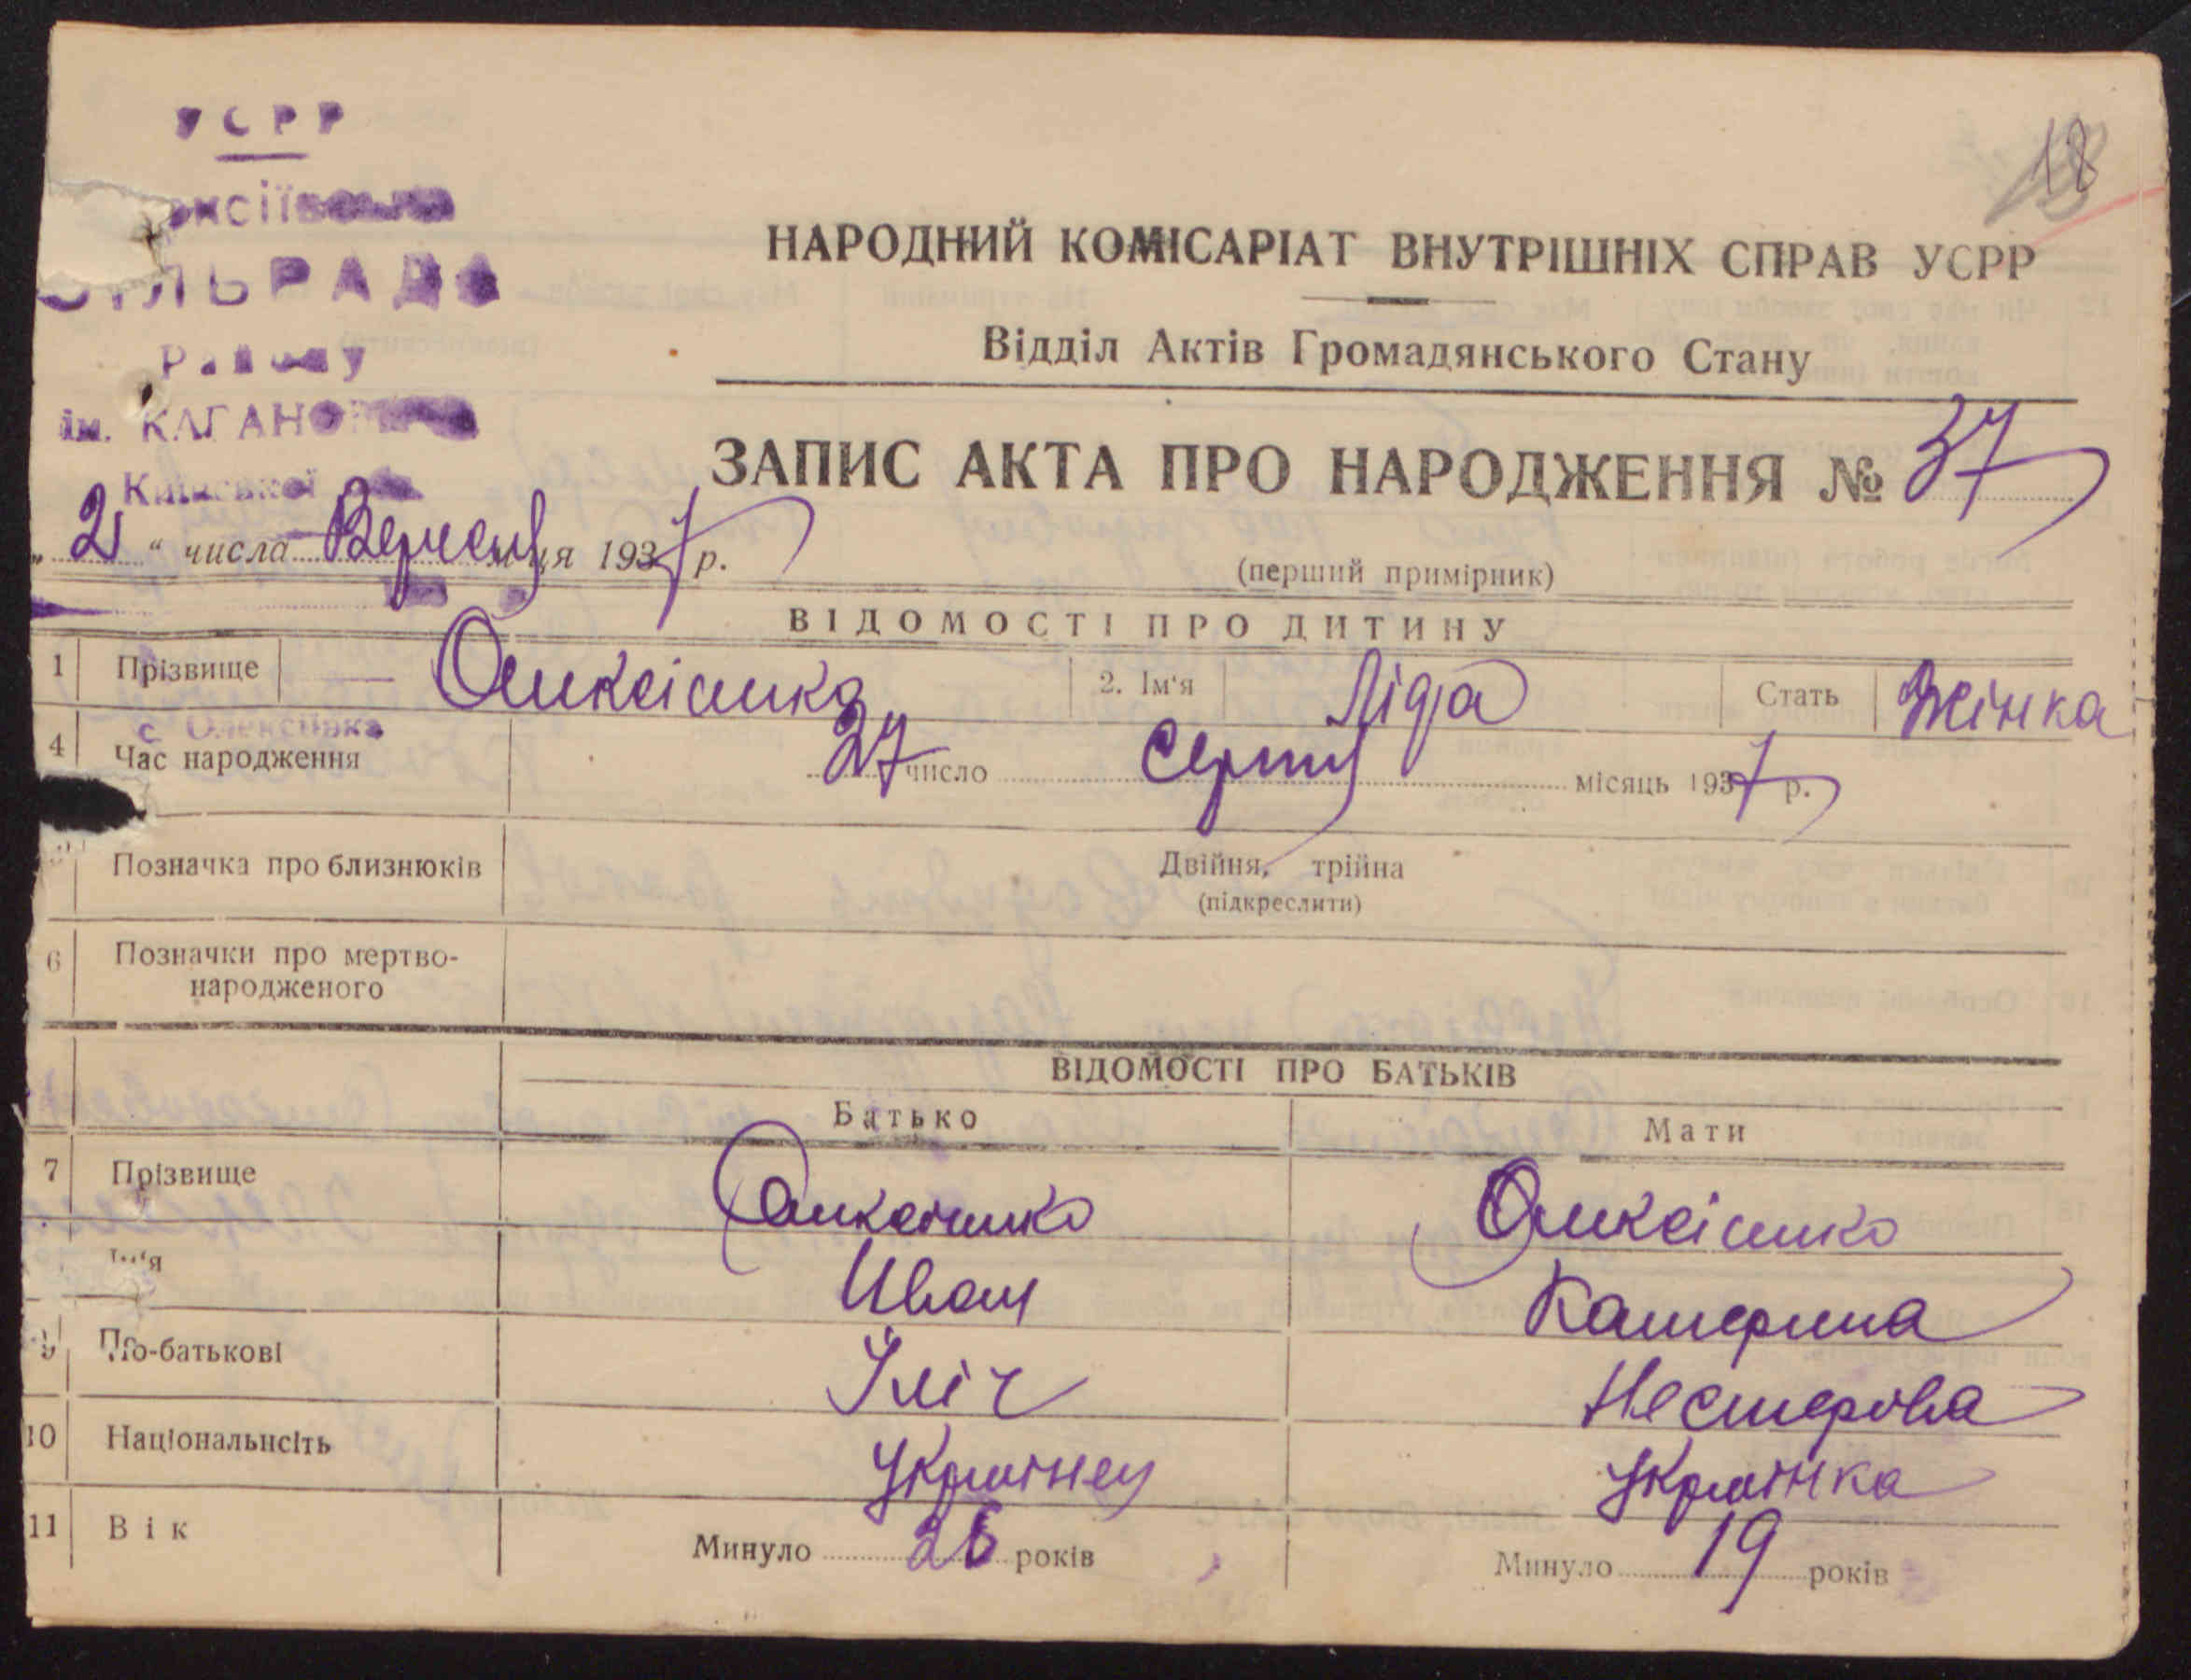 УСРР
СІЛЬРАДА
Району
ім. КАГАНОВИЧА
Київської
18
НАРОДНИЙ КОМІСАРІАТ ВНУТРІШНІХ СПРАВ УСРР
Відділ Актів Громадянського Стану
ЗАПИС АКТА ПРО НАРОДЖЕННЯ № 37
„2“ числа Вересня м-ця 1937 р.
(перший примірник)
ВІДОМОСТІ ПРО ДИТИНУ
1 Прізвище Оликсієнко 2. Ім'я Ліда Стать Жінка
с. Олексіївка
4 Час народження 27 число Серпня місяць 1937 р.
Позначка про близнюків Двійня, трійна
(підкреслити)
6 Позначки про мертво-
народженого
ВІДОМОСТІ ПРО БАТЬКІВ
Батько Мати
7 Прізвище Оликсієнко Оликсієнко
Ім'я Иван Катерина
9 По-батькові Іліч Нестерова
10 Національнсіть Українец Українка
11 Вік Минуло 26 років Минуло 19 років